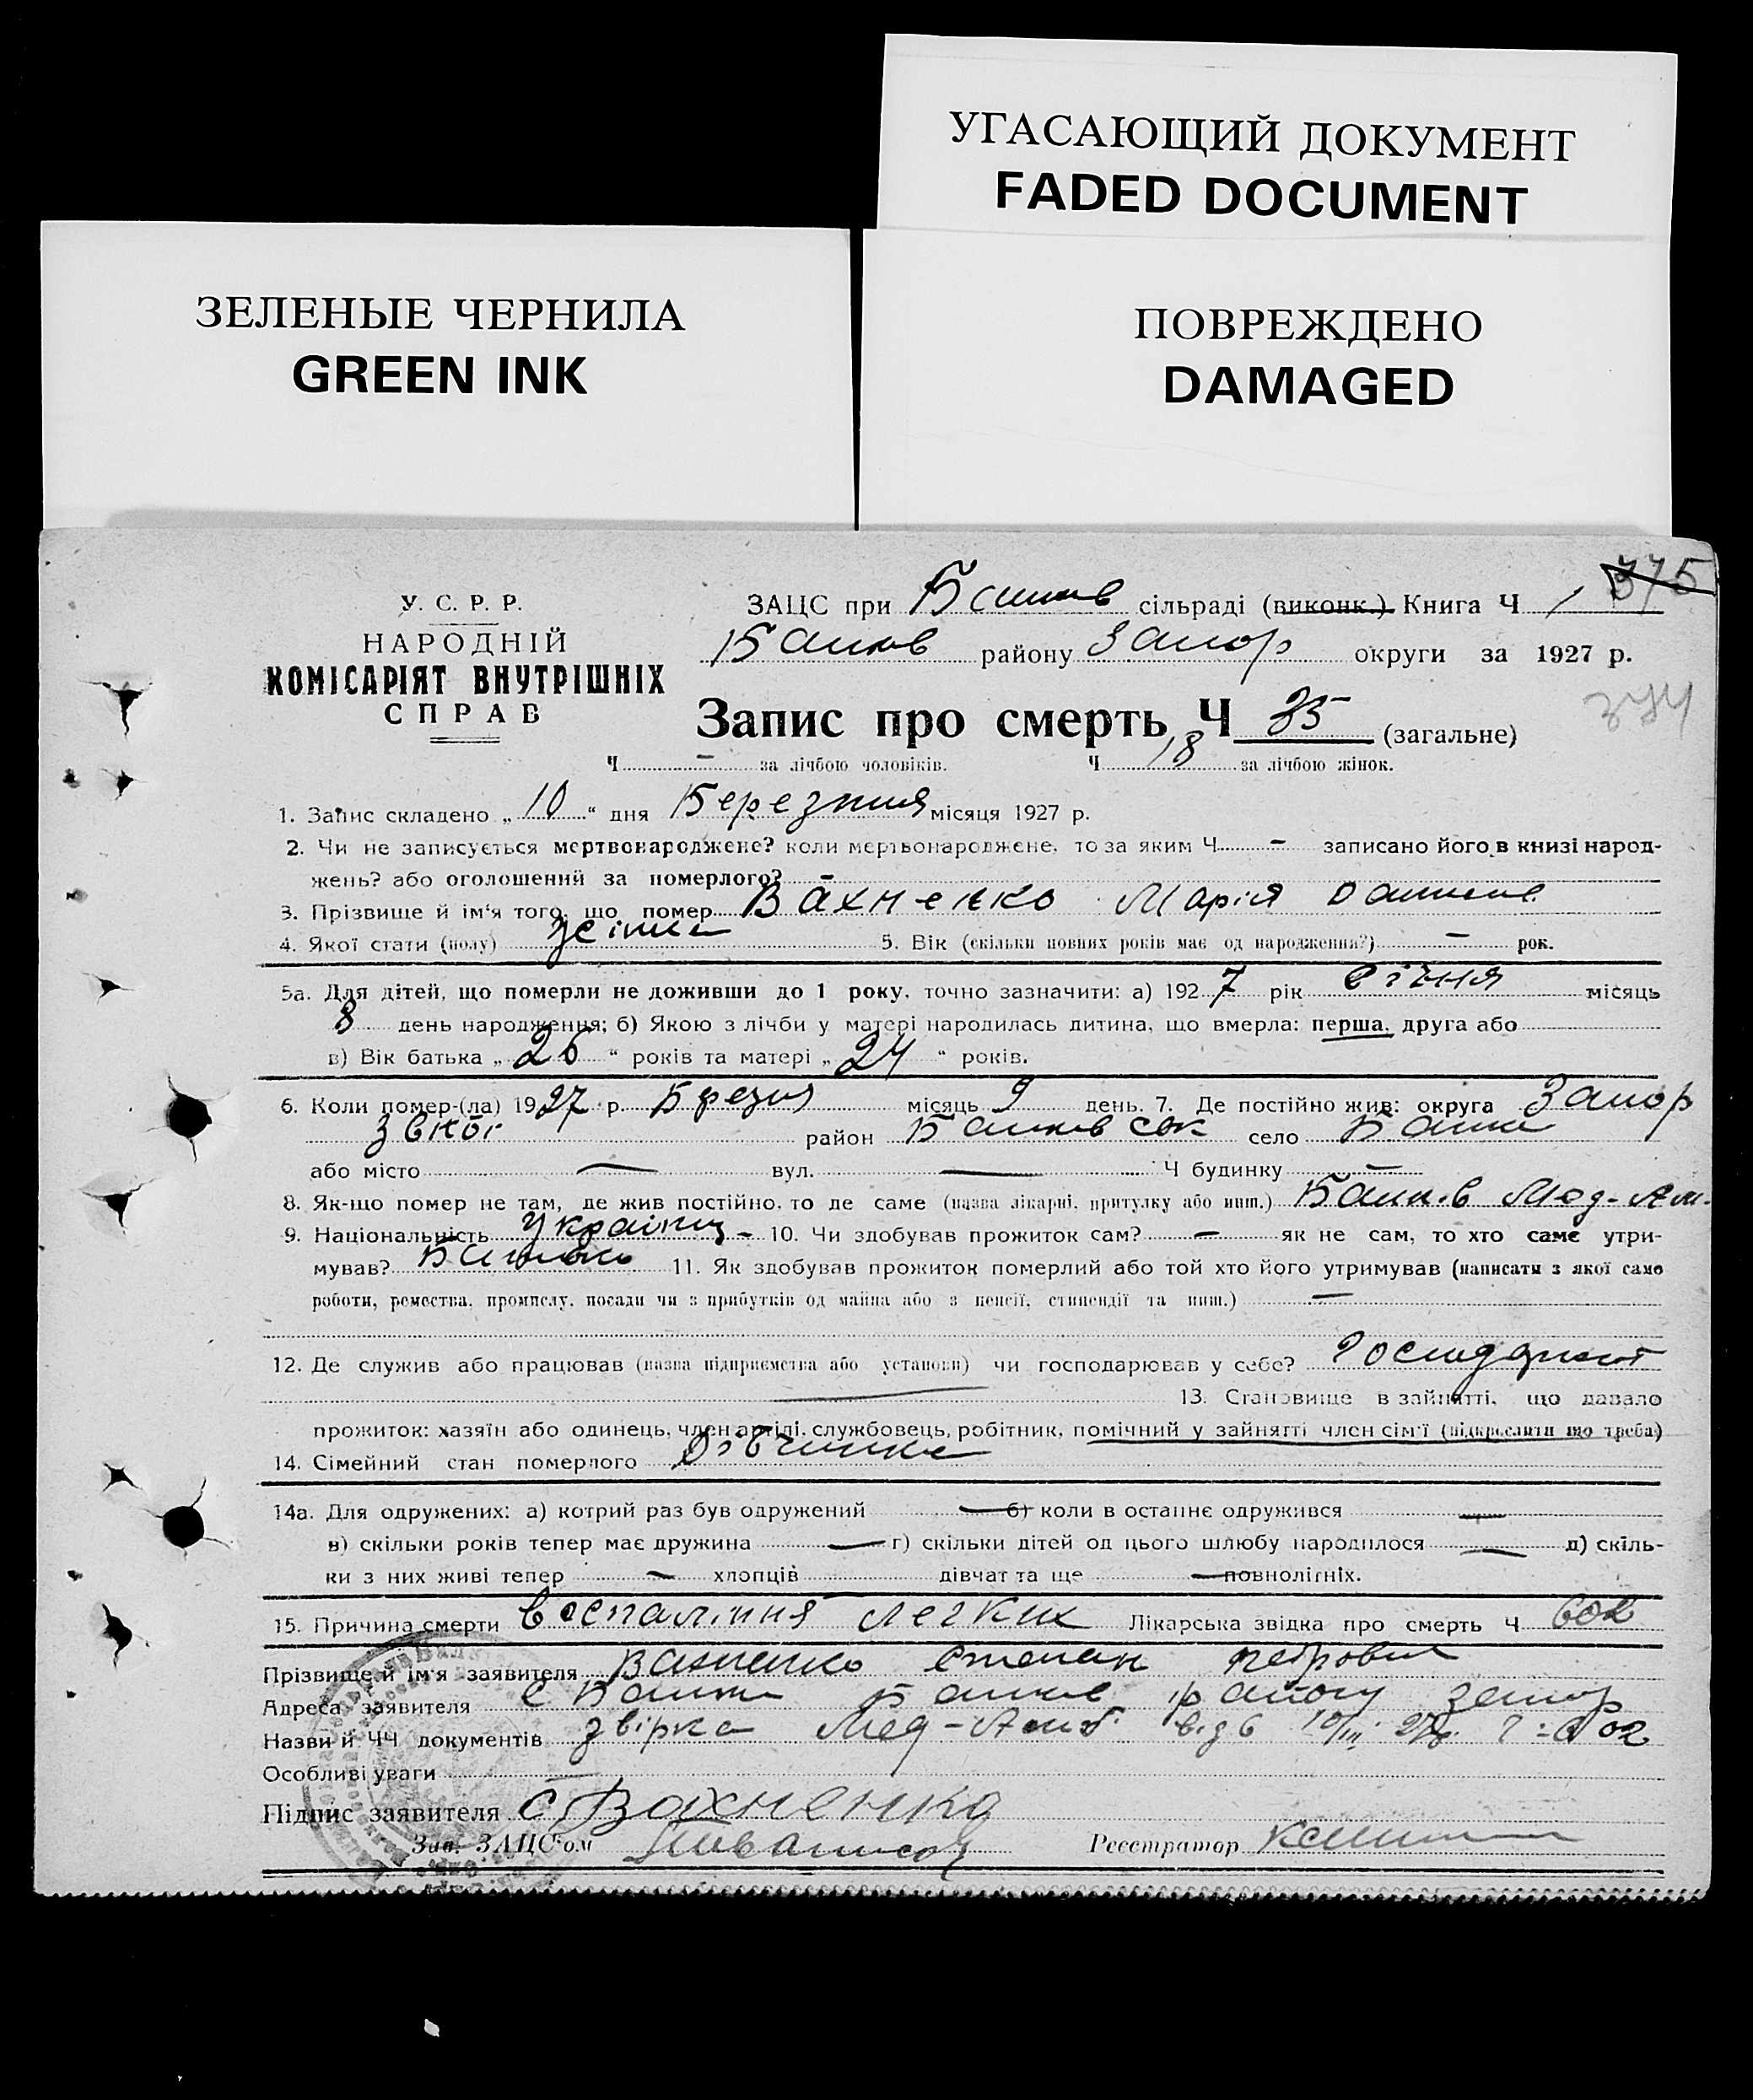 УГАСАЮЩИЙ ДОКУМЕНТ
FADED DOCUMENT
ЗЕЛЕНЫЕ ЧЕРНИЛА
GREEN INK
ПОВРЕЖДЕНО
DAMAGED
375
У. С. Р. Р.
НАРОДНІЙ
КОМІСАРІЯТ ВНУТРІШНІХ
СПРАВ
ЗАЦС при сільраді (виконк.) Книга Ч 1
району Запор округи за 1927 р.
374
Запис про смерть Ч 35 (загальне)
Ч — за лічбою чоловіків. Ч 18 за лічбою жінок.
1. Запис складено „ 10 “ дня Березня місяця 1927 р.
2. Чи не записується мертвонароджене? коли мертвонароджене, то за яким Ч — записано його в книзі народ-
жень? або оголошений за померлого? —
3. Прізвище й ім'я того, що помер Вахненко Марія
4. Якої стати (полу) жіноча 5. Вік (скільки повних років має од народження?) — рок.
5а. Для дітей, що померли не доживши до 1 року, точно зазначити: а) 1927 рік Січня місяць
8 день народження; б) Якою з лічби у матері народилась дитина, що вмерла: перша, друга або
в) Вік батька „ 26 “ років та матері „ 24 “ років.
6. Коли помер-(ла) 1927 р. Березня місяць 9 день. 7. Де постійно жив: округа Запор
район село
або місто — вул. — Ч будинку —
8. Як-що помер не там, де жив постійно, то де саме (назва лікарні, притулку або инш.) Мед-Ам.
9. Національність 10. Чи здобував прожиток сам? — як не сам, то хто саме утри-
мував? Батько 11. Як здобував прожиток померлий або той хто його утримував (написати з якої само
роботи, ремества, промислу, посади чи з прибутків од майна або з пенсії, стипендії та инш.) —
12. Де служив або працював (назва підприємства або установи) чи господарював у себе?
13. Становище в зайнятті, що давало
прожиток: хазяїн або одинець, член артілі, службовець, робітник, помічний у зайнятті член сім'ї (підкреслити що треба)
14. Сімейний стан померлого Дівчинка
14а. Для одружених: а) котрий раз був одружений — б) коли в останнє одружився —
в) скільки років тепер має дружина — г) скільки дітей од цього шлюбу народилося — д) скіль-
ки з них живі тепер — хлопців дівчат та ще — повнолітніх.
15. Причина смерти Воспаління легких Лікарська звідка про смерть Ч 602
Прізвище й ім'я заявителя Вахненко Степан Петрович
Адреса заявителя району Запор
Назви й ЧЧ документів Мед-Амб. від 10/III 27
Особливі уваги —
Підпис заявителя С Вахненко
Зав. ЗАЦС'ом Реєстратор